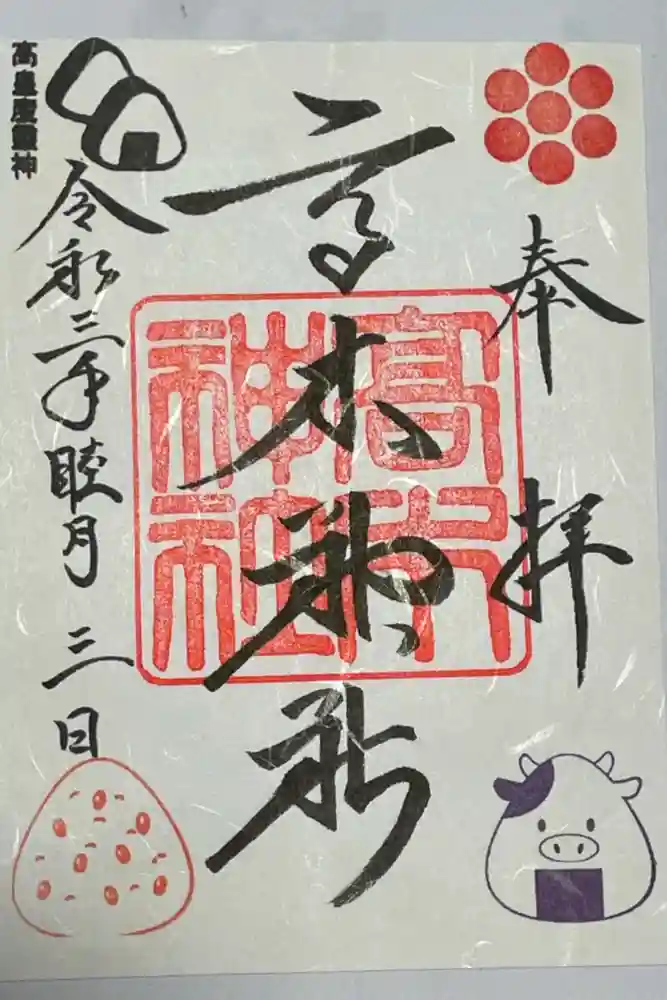 奉拝
高木神社
高木
神社
令和三年睦月三日
高皇産靈神